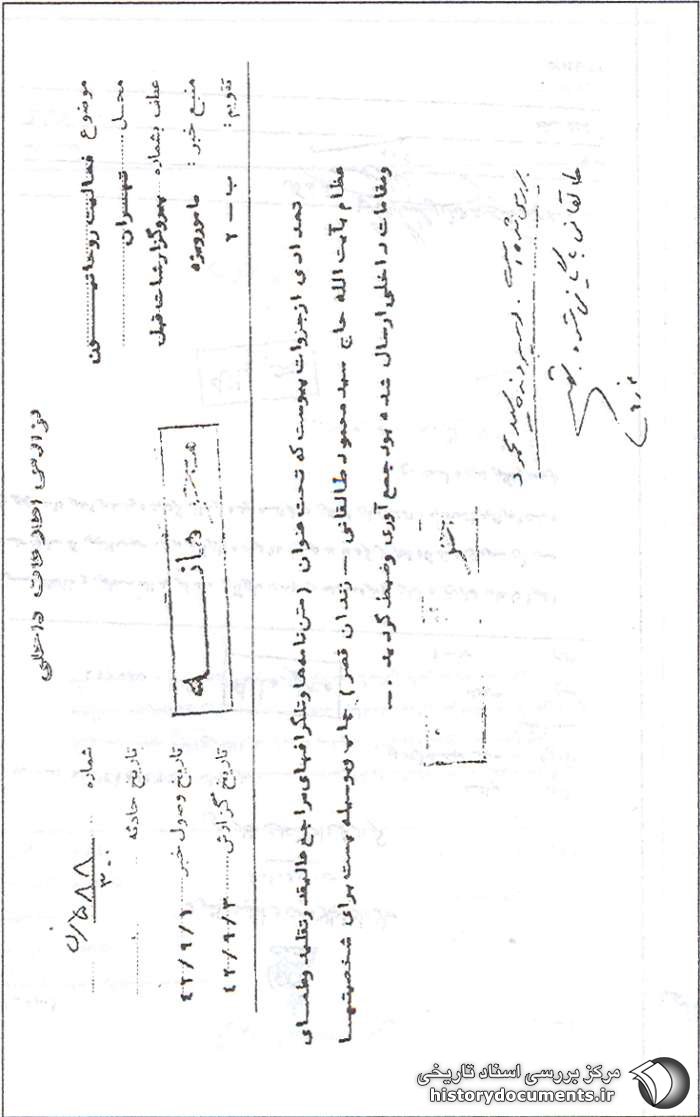 گزارش اطلاعات داخلی
موضوع فعالیت روحانیون
محل تهران
عطف بشماره پیروگزارشات قبل
منبع خبر: مامورویژه
تقویم: ب - ۲
شماره ۳۰۰
تاریخ حادثه
تاریخ وصول خبر ۴۲/۹/۱
تاریخ گزارش ۴۲/۹/۳
تعدادی ازجزوات پیوست که تحت عنوان (متن نامه‌ها وتلگرافهای مراجع عالیقدرتقلید وعلمای
عظام بآیت الله حاج سید محمود طالقانی - زندان قصر) چاپ وبوسیله پست برای شخصیتها
ومقامات داخلی ارسال شده بود جمع آوری وضبط گردید -
بررسی شده است
مرکز بررسی اسناد تاریخی
historydocuments.ir